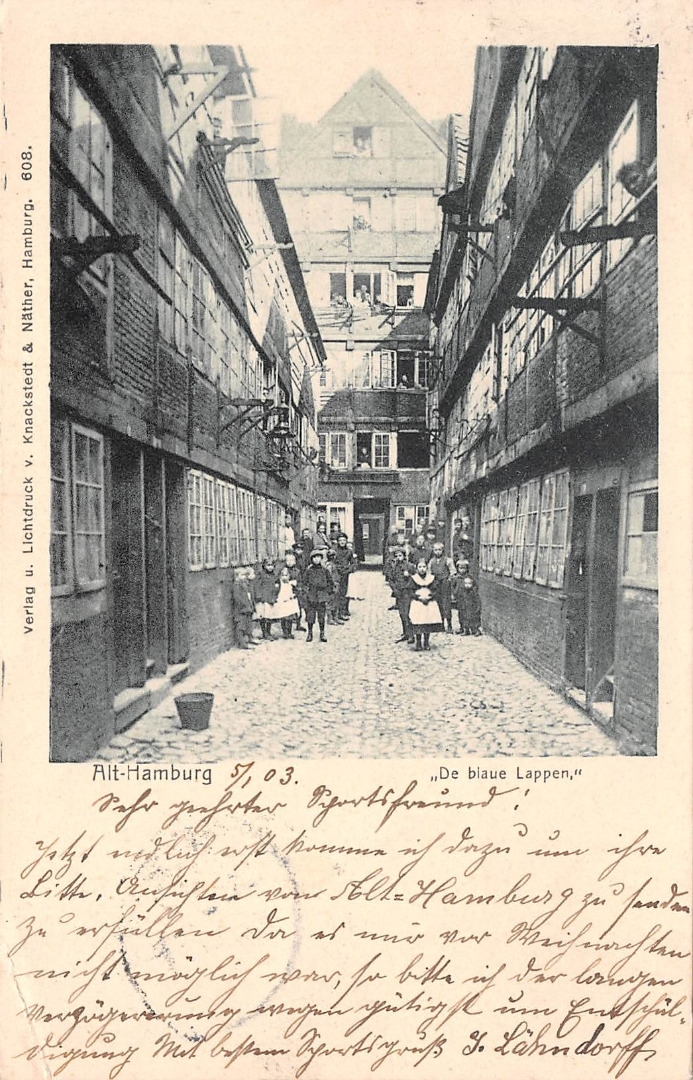 Verlag u. Lichtdruck v. Knackstedt & Näther, Hamburg. 608.
Alt-Hamburg 5/1 03. „De blaue Lappen,“
Sehr geehrter Sportsfreund!
Jetzt endlich erst komme ich dazu um ihre
Bitte, Ansichten von Alt=Hamburg zu senden
zu erfüllen Da es mir vor Weihnachten
nicht möglich war, so bitte ich der langen
Verzögererung wegen gütigst um Entschül-
digung Mit bestem Sportsgruß J. Lähndorff